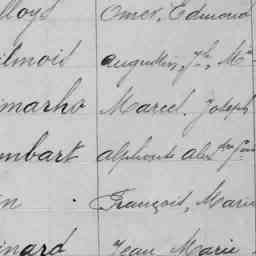 lloys Omer, Edmond
ilmois Augustin, Jh, Mie
marho Marcel Joseph
mbart alphonse alex
in François, Marie
inard Jean Marie